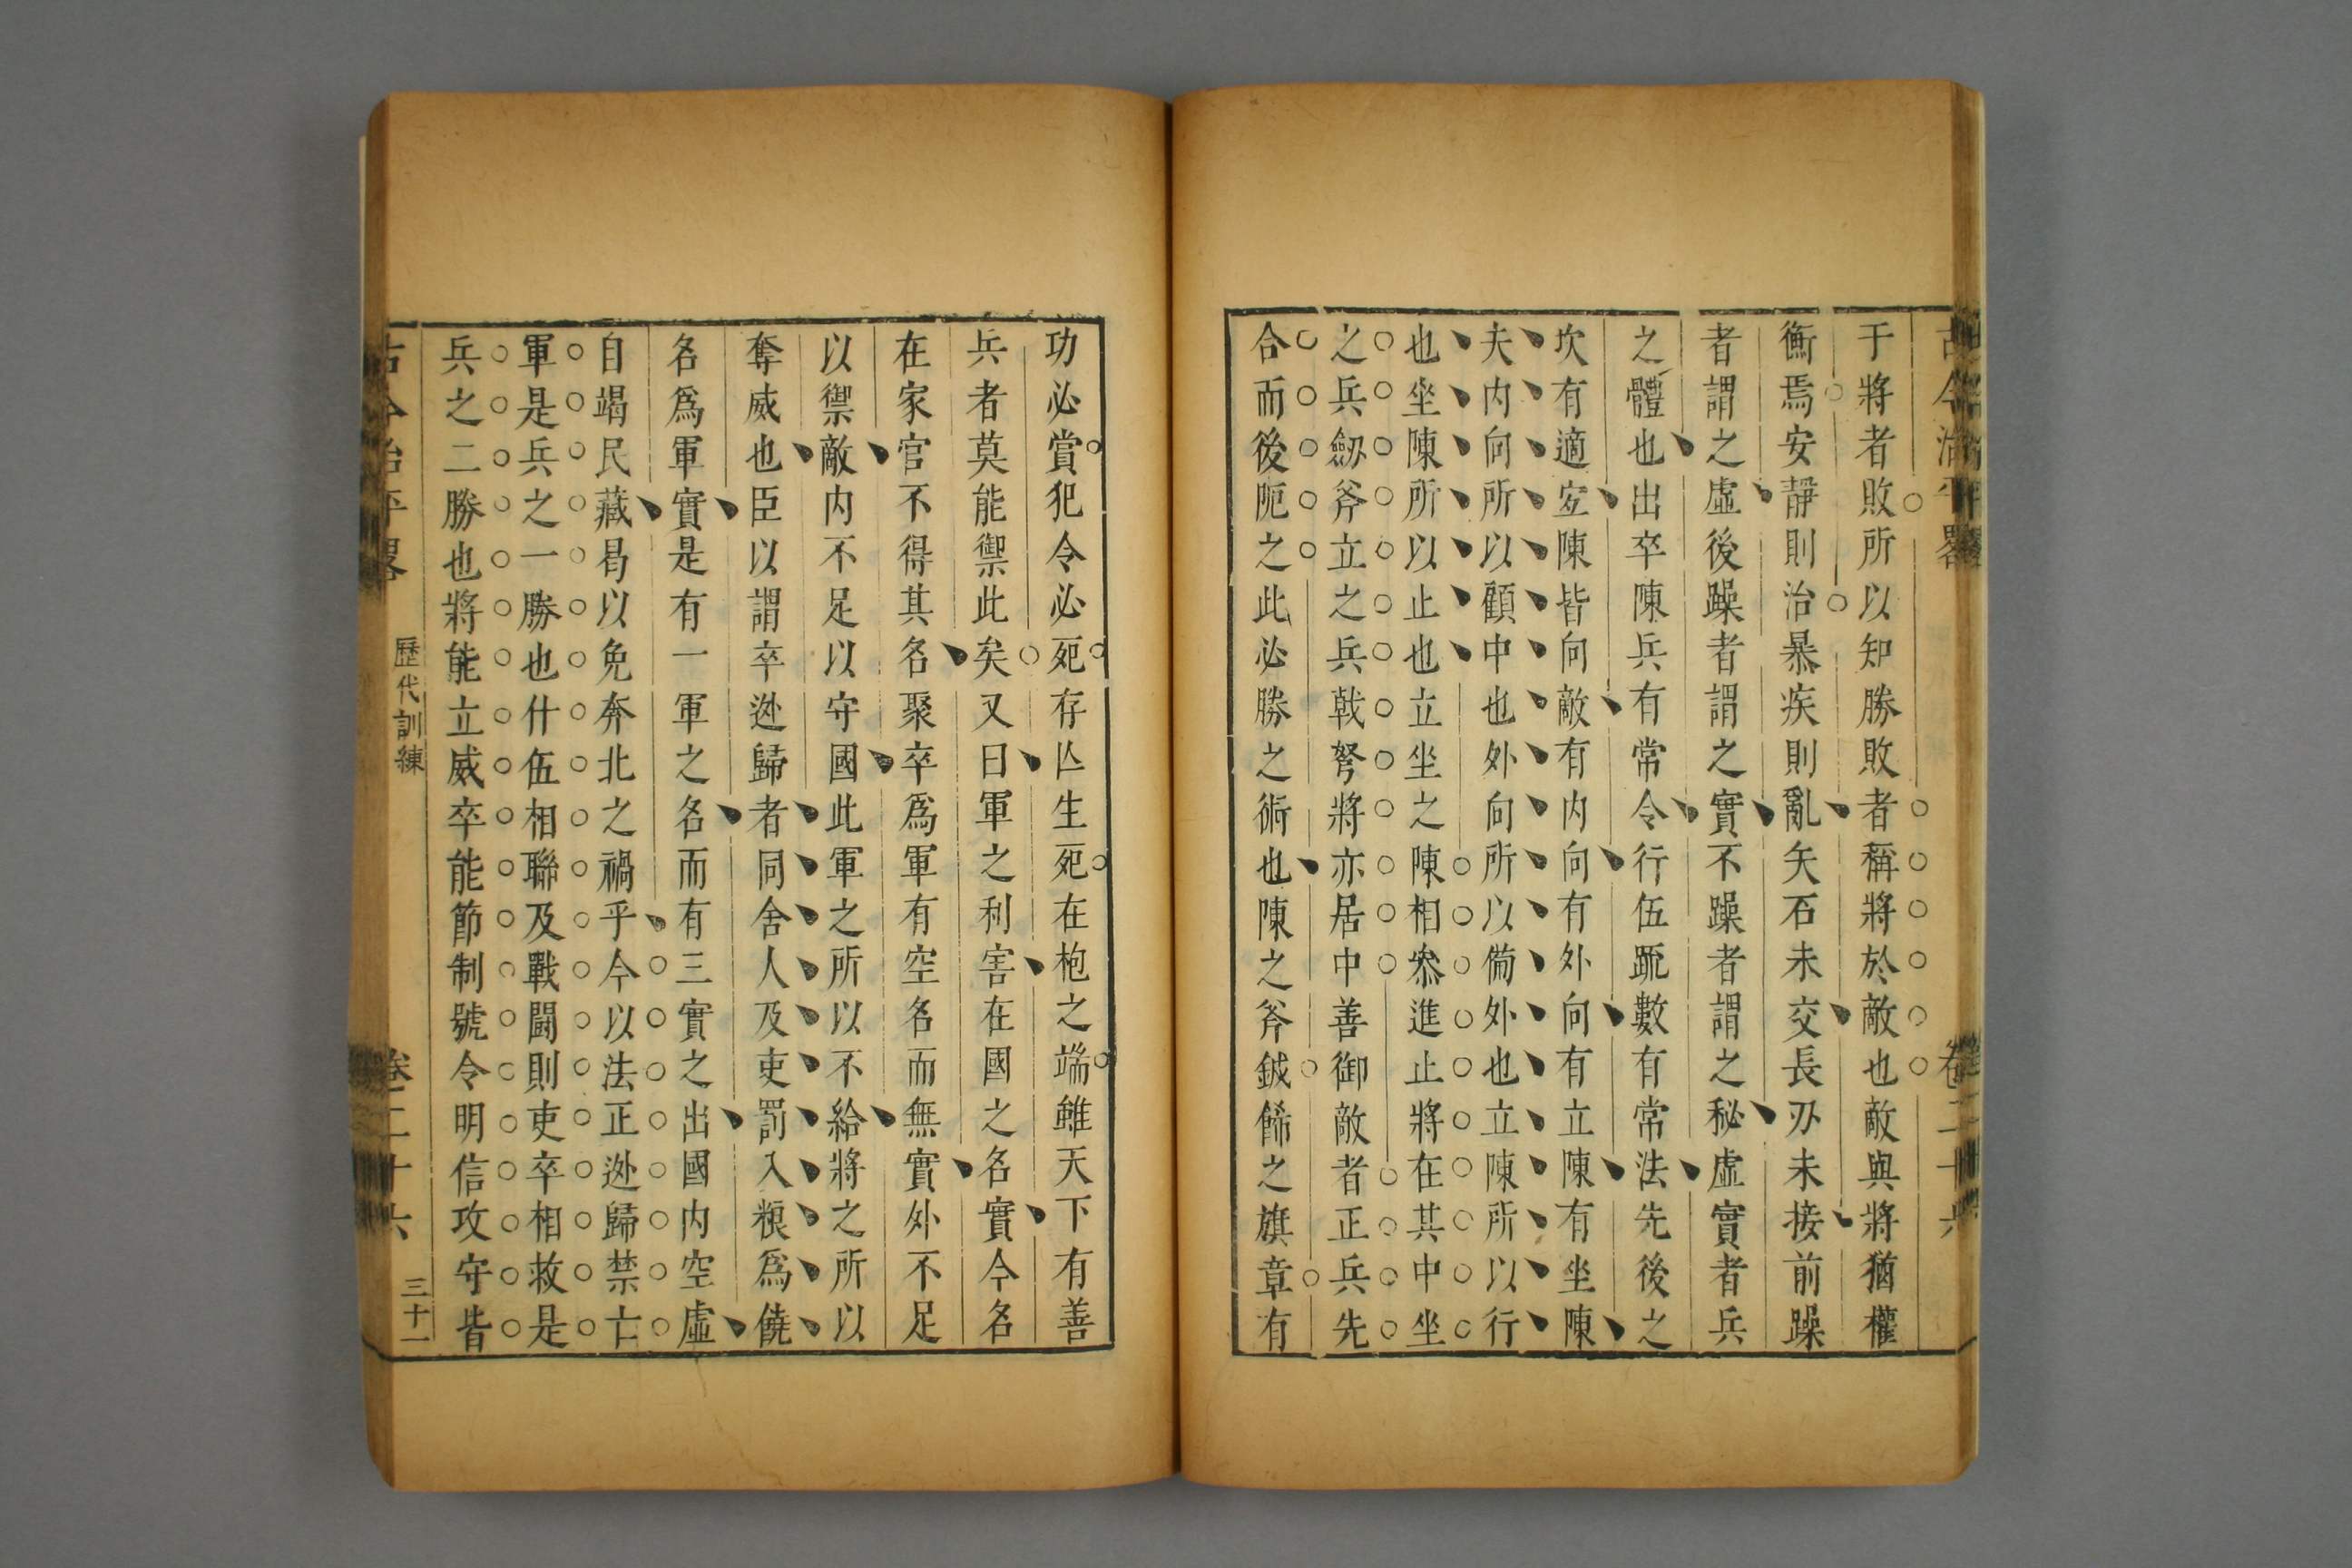 古今治平畧 卷二十六
于將者敗所以知勝敗者稱將於敵也敵與將猶權
衡焉安靜則治暴疾則亂矢石未交長刃未接前躁
者謂之虛後躁者謂之實不躁者謂之秘虛實者兵
之體也出卒陳兵有常令行伍䟽數有常法先後之
次有適宐陳皆向敵有内向有外向有立陳有坐陳
夫内向所以顧中也外向所以備外也立陳所以行
也坐陳所以止也立坐之陳相叅進止將在其中坐
之兵劒斧立之兵戟弩將亦居中善御敵者正兵先
合而後阨之此必勝之術也陳之斧鉞餙之旗章有
功必賞犯令必死存亾生死在枹之端雖天下有善
兵者莫能禦此矣又曰軍之利害在國之名實今名
在家官不得其名聚卒爲軍有空名而無實外不足
以禦敵内不足以守國此軍之所以不給將之所以
奪威也臣以謂卒逃歸者同舍人及吏罰入粮爲饒
名爲軍實是有一軍之名而有三實之出國内空虛
自竭民藏曷以免奔北之禍乎今以法正逃歸禁亡
軍是兵之一勝也什伍相聯及戰闘則吏卒相救是
兵之二勝也將能立威卒能節制號令明信攻守皆
古今治平畧 歷代訓練 卷二十六 三十一